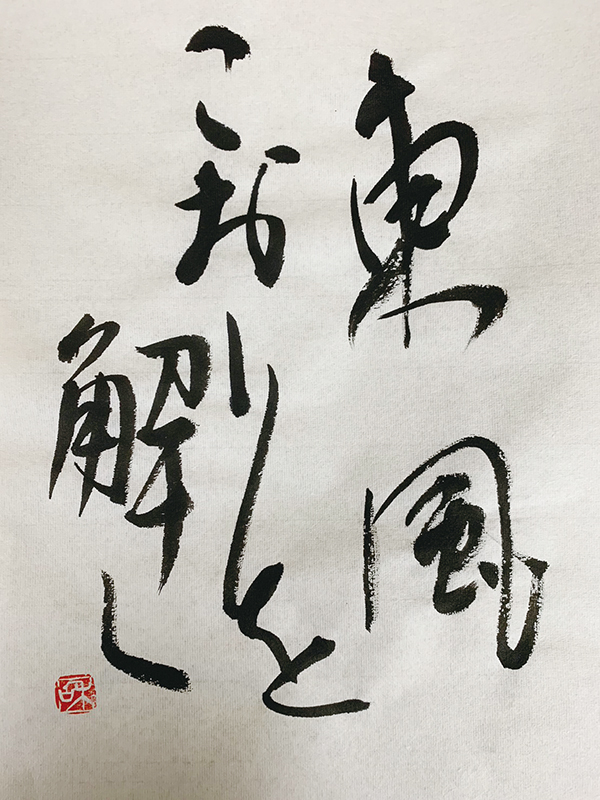 東風
こおりを
解く